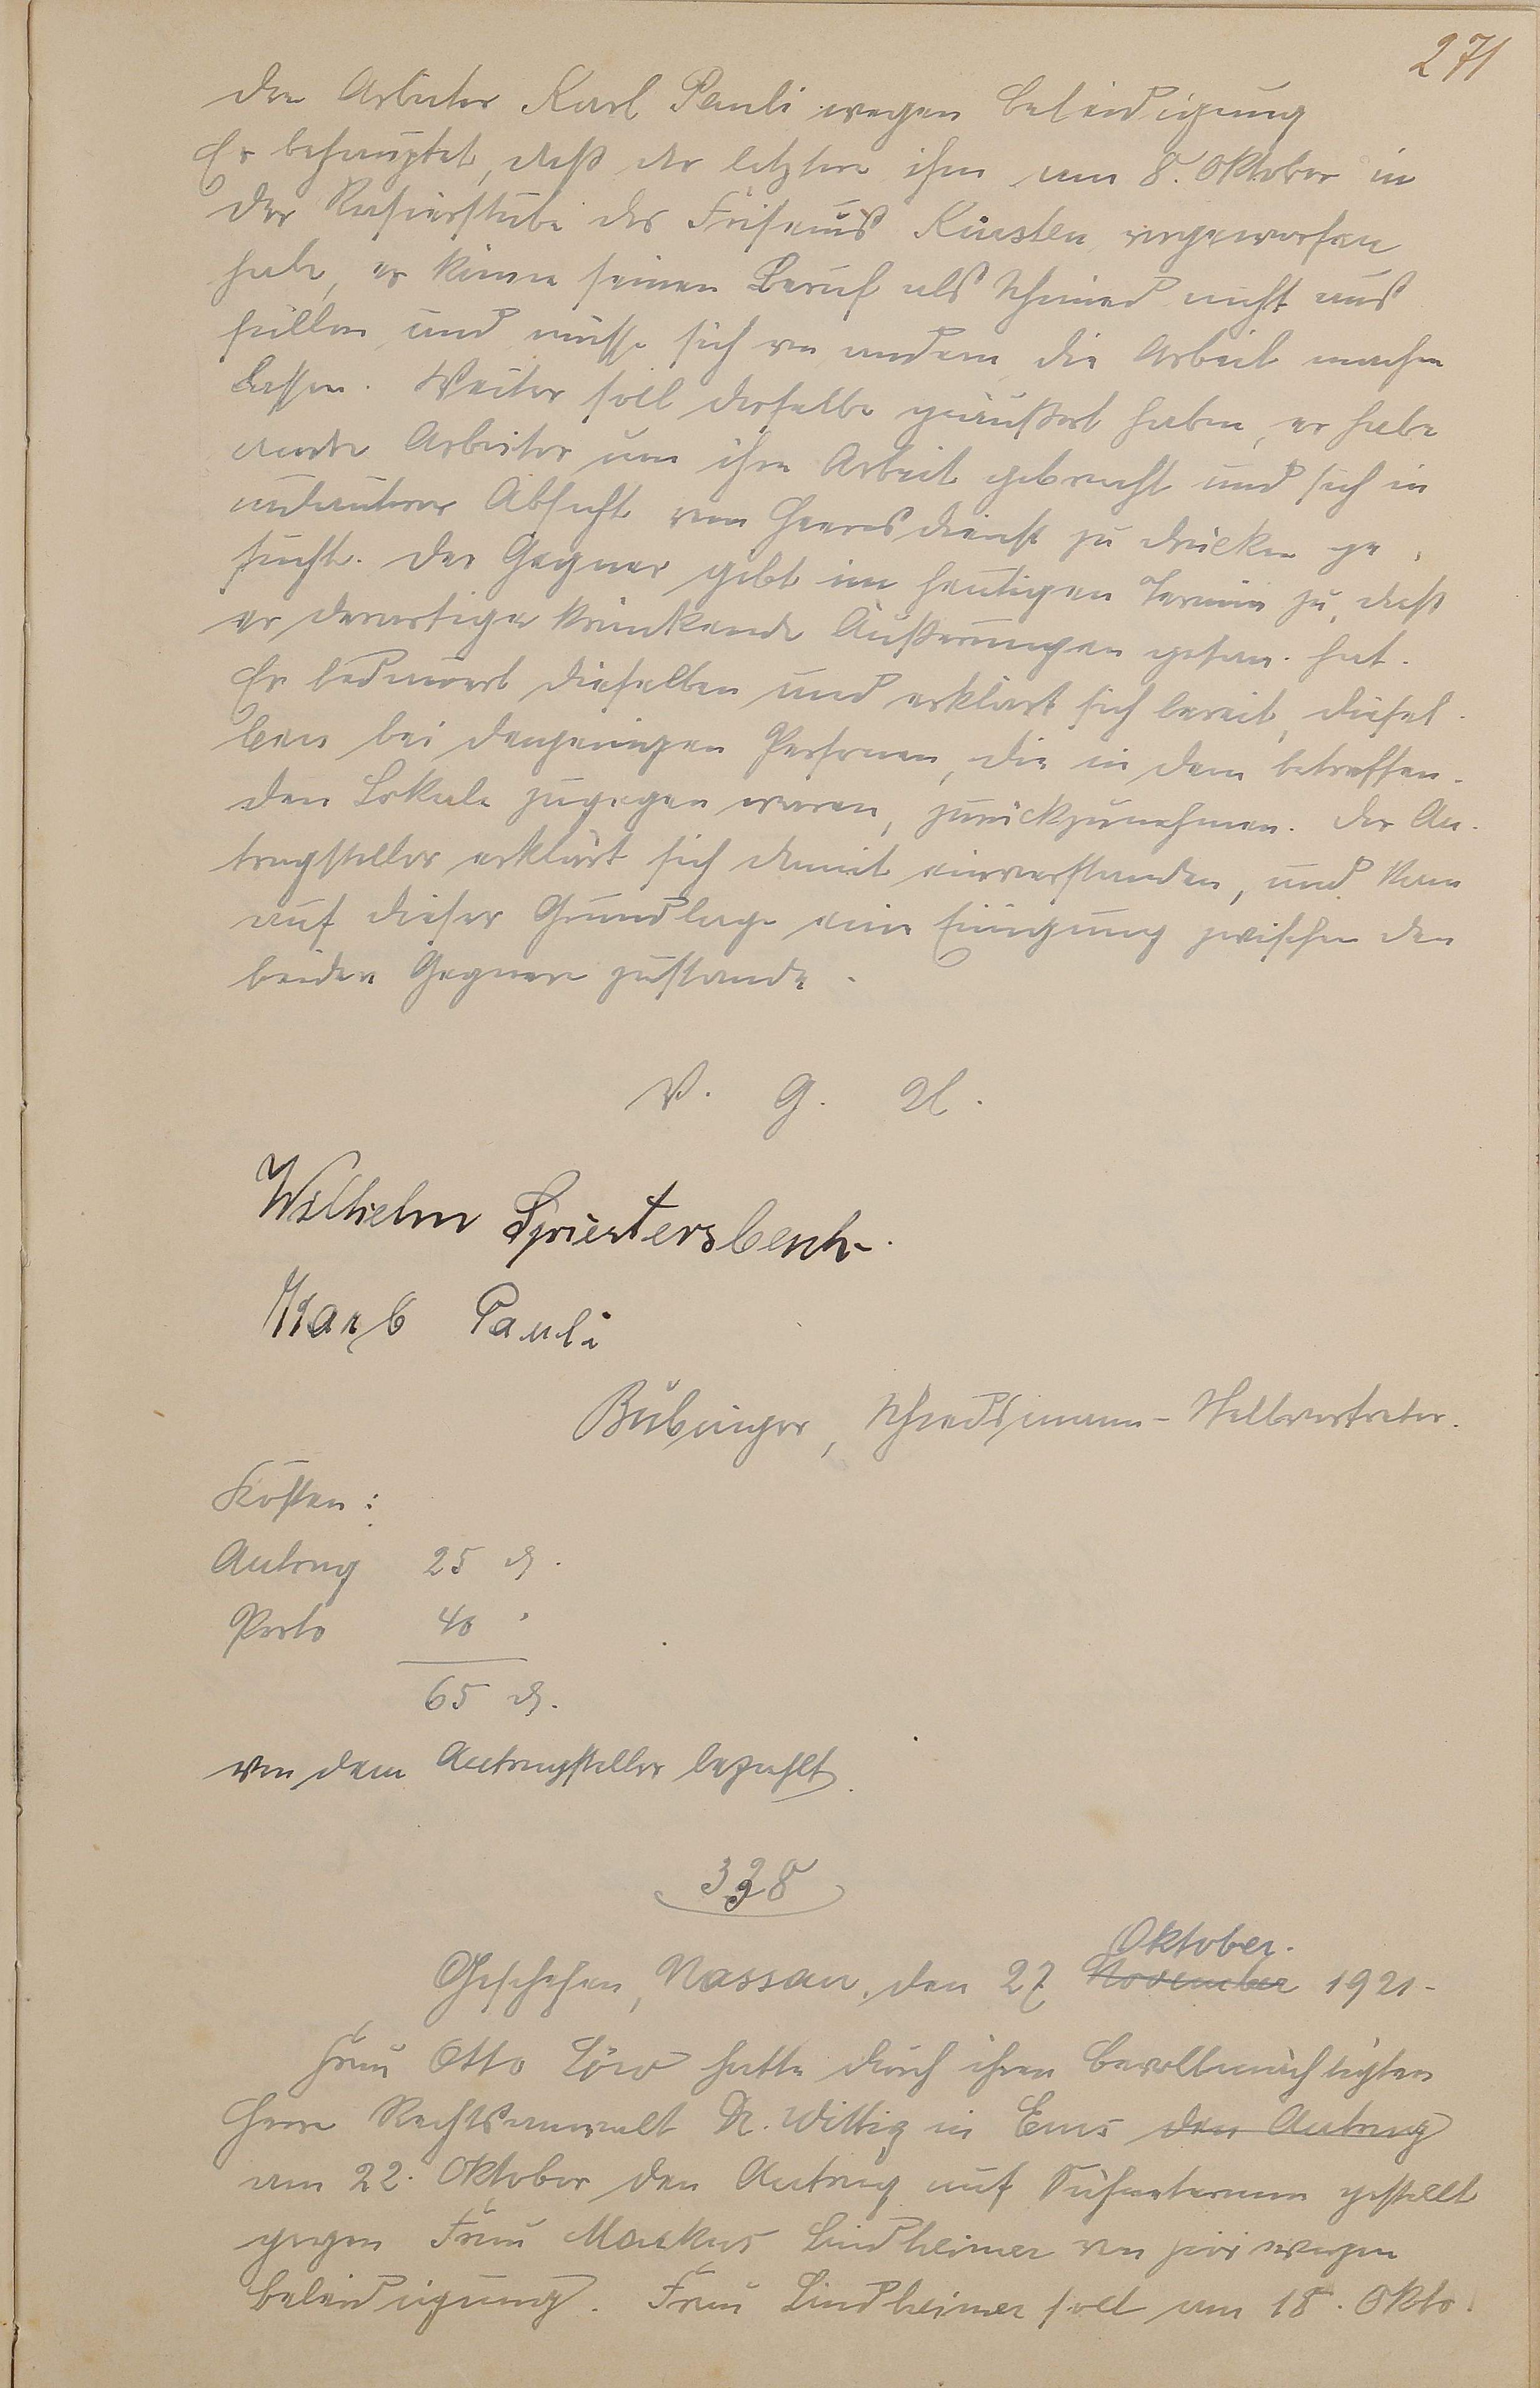 271
den Arbeiter Karl Pauli wegen Beleidigung
Er behauptet, daß der letztere ihm am 8. Oktober in
der Rasierstube des Friseurs Künsten vorgeworfen
habe, er könne seinen Beruf als Schmied nicht aus
füllen und müsse sich von andern die Arbeit machen
lassen. Weiter soll derselbe geäußert haben, er habe
andere Arbeiter um ihre Arbeit gebracht und sich in
unlauterer Absicht vom Heeresdienst zu drücken ge-
sucht. Der Gegner gibt im heutigen Termin zu, daß
er derartige kränkende Äußerungen getan hat.
Er bedauert dieselben und erklärt sich bereit, diesel-
ben bei denjenigen Personen, die in dem betreffen-
den Lokale zugegen waren, zurückzunehmen. Der An-
tragsteller erklärt sich damit einverstanden, und kam
auf dieser Grundlage eine Einigung zwischen den
beiden Gegnern zustande.
V. g. U.
Wilhelm Spriestersbach.
Karl Pauli
Bübinger, Schiedsmann-Stellvertreter.
Kosten:
Antrag 25 ₰.
Porto 40 "
65 ₰.
von dem Antragsteller bezahlt.
328
Oktober.
Geschehen, Nassau, den 27. November 1921.
Frau Otto Löw hatte durch ihren Bevollmächtigten
Herrn Rechtsanwalt Dr. Wittig in Ems den Antrag
am 22. Oktober den Antrag auf Sühnetermin gestellt
gegen Frau Markus Lindheimer von hier wegen
Beleidigung. Frau Lindheimer soll am 18. Okto-